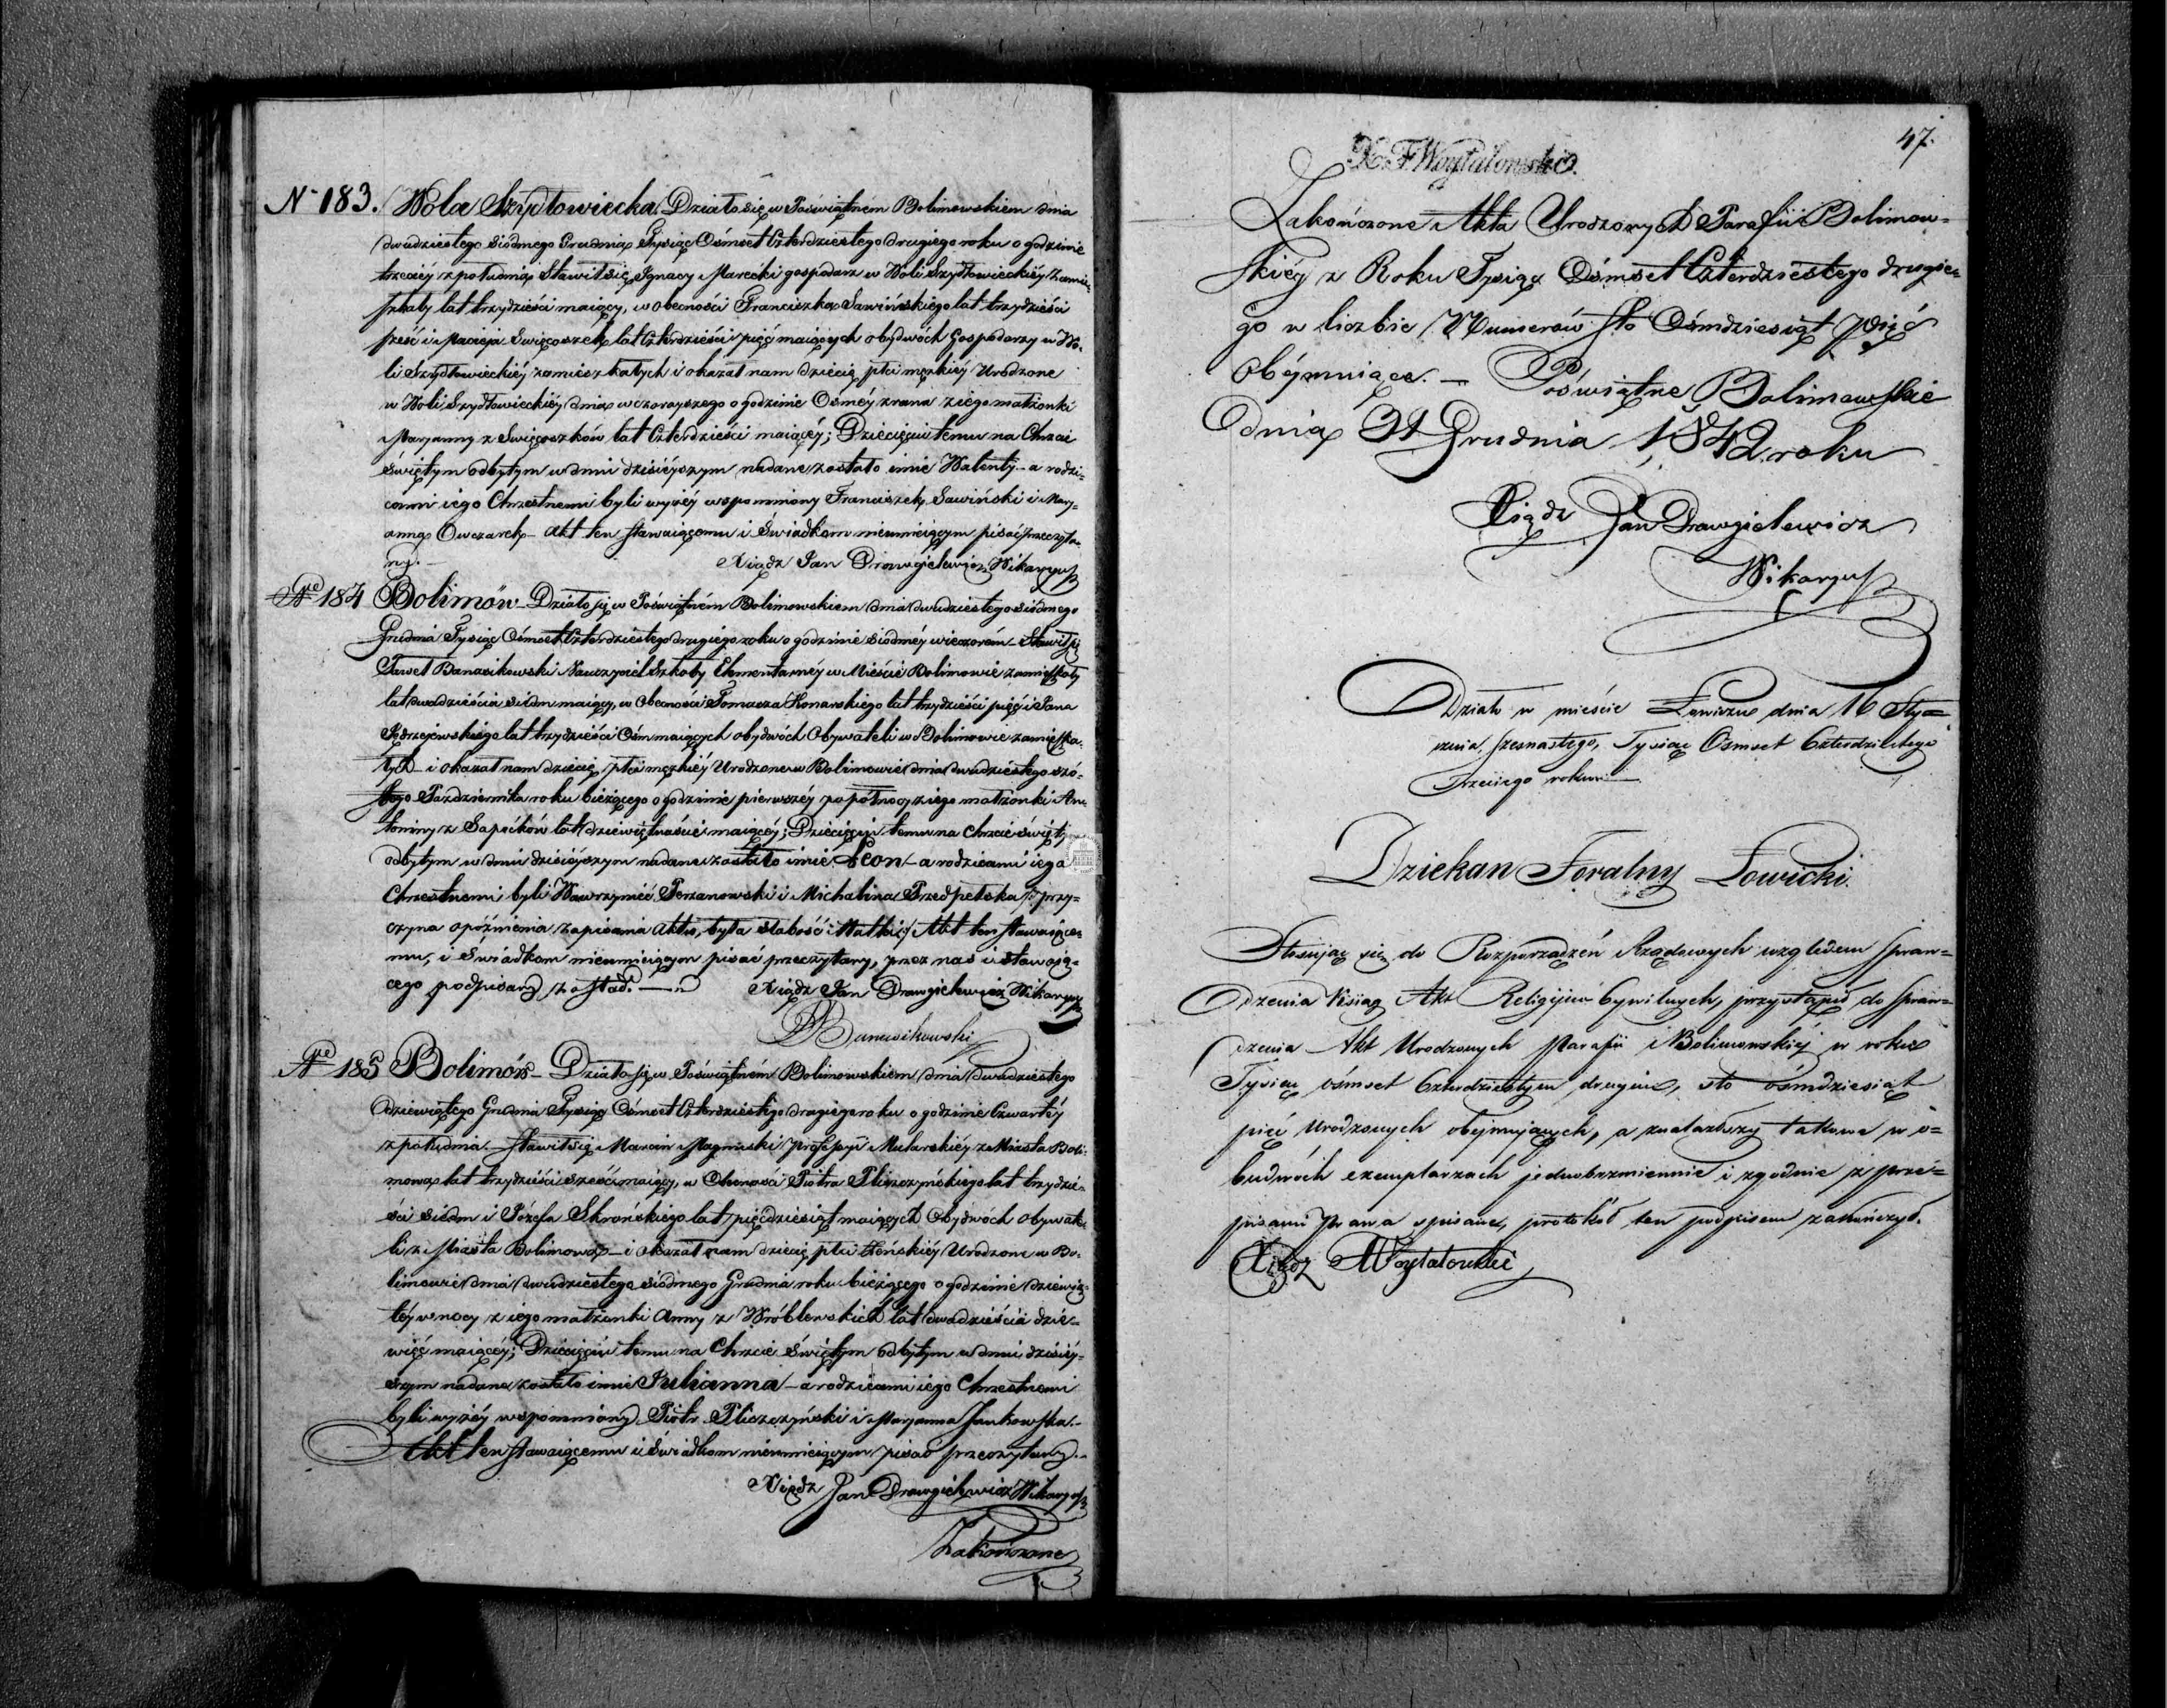 N 183. Wola Szydłowiecka. Działo się w Poświątném Bolimowskiem dnia
dwudziestego siódmego Grudnia Tysiąc Ośmset Czterdziestego drugiego roku o godzinie
trzeciéy z południa Stawił się Ignacy Marećki gospodarz w Woli Szydłowieckiéy zamie-
szkały lat trzydzieści maiący, w obecności Franciszka Sawińskiego lat trzydzieści
sześć i Macieja Swięcoszek lat czterdzieści pięć maiących obydwóch Gospodarzy w Wo-
li Szydłowieckiéy zamieszkałych i okazał nam dziecię płci męzkiéy Urodzone
w Woli Szydłowieckiéy dnia wczorayszego o godzinie Osméy zrana z iego małżonki
Maryanny z Swięcoszków lat Czterdzieści maiącéy; Dziecięciu temu na Chrzcie
świętym odbytym w dniu dzisiéyszym nadane zostało imie Walenty – a rodzi-
cami iego Chrzestnemi byli wyżéy wspomniony Franciszek Sawiński i Mary-
anna Owczarek – Akt ten stawaiącemu i Świadkom nieumieiącym pisać przeczyta-
ny. –
Xiądz Jan Drawgielewicz Wikaryusz
Nro 184 Bolimów – Działo się w Poświątném Bolimowskiem dnia dwudziestego siódmego
Grudnia Tysiąc Ośmset Czterdziestego drugiego roku o godzinie siódméy wieczorem – Stawił się
Paweł Banasikowski Nauczyciel Szkoły Elementarnéy w Mieście Bolimowie zamieszkały
lat dwadzieścia siedm maiący, w Obecności Tomasza Konarskiego lat trzydzieści pięć i Jana
Jędrzejewskiego lat trzydzieści Ośm maiących obydwóch Obywateli w Bolimowie zamieszka-
łych – i okazał nam dziecię płci męzkiéy Urodzone w Bolimowie dnia dwudziestego szó-
stego Pazdziernika roku bieżącego o godzinie pierwszéy po północy z iego małżonki An-
toniny z Sapećków lat dziewiętnaście maiącéy; Dziecięciu temu na Chrzcie święty
odbytym w dniu dzisiéyszym nadane zostało imie Leon – a rodzicami iego
Chrzestnemi byli Wawrzyniec Perzanowski i Michalina Przedpełska /: przy-
czyna opóźnienia zapisania aktu, była słabość Matki :/ Akt ten stawaiące-
mu, i Świadkom nieumieiącym pisać przeczytany, przez nas i stawają-
cego podpisany został. –
Xiądz Jan Drawgielewicz Wikaryusz
PBanasikowski
Nro 185 Bolimów – Działo się w Poświątném Bolimowskiem dnia dwudziestego
dziewiątego Grudnia Tysiąc Ośmset Czterdziestego drugiego roku o godzinie Czwartéy
z południa. – Stawił się Marcin Magnuski professyi Mularskiéy z Miasta Boli-
mowa lat trzydzieści sześć maiący, w Obecności Piotra Pliszczyńskiego lat trzydzie-
ści siedm i Józefa Skrońskiego lat pięćdziesiąt maiących Obydwóch obywate-
li z Miasta Bolimowa – i okazał nam dziecię płci żeńskiéy Urodzone w Bo-
limowie dnia dwudziestego siódmego Grudnia roku bieżącego o godzinie dziewią-
téy w nocy z iego małżonki Anny z Wróblewskich lat dwadzieścia dzie-
więć maiącéy; Dziecięciu temu na Chrzcie świętym odbytym w dniu dzisiéy-
szym nadane zostało imie Julianna – a rodzicami iego Chrzestnemi
byli wyżéy wspomniony Piotr Pliszczyński i Maryanna Jankowska. –
Akt ten stawaiącemu i Świadkom nieumieiącym pisać przeczytany. –
Xiądz Jan Drawgielewicz Wikaryusz
Zakończone
47.
X. F Woytalowskio.
Zakończone Akta Urodzonych Parafii Bolimow-
skiéy z Roku Tysiąc Ośmset Czterdziestego drugie-
go w liczbie Numerów sto Ośmdziesiąt pięć
obéymuiące. – Poświątne Bolimowskie
dnia 31 Grudnia 1842 roku
Xiądz Jan Drawgielewicz
Wikaryusz
Działo w mieście Łowiczu dnia 16 Sty-
cznia, szesnastego, Tysiąc Ośmset Czterdziestego
Trzeciego roku.
Dziekan Foralny Łowicki.
Stosując się do Rozporządzeń Rządowych względem spraw-
dzenia Ksiąg Akt Religijno Cywilnych, przystąpił do spraw-
dzenia Akt Urodzonych Parafii Bolimowskiéj w roku
Tysiąc ośmset Czterdziestym drugim, sto ośmdziesiąt
pięć Urodzonych obejmujących, a znalazłszy takowe w o-
budwóch exemplarzach jednobrzmiennie i zgodnie z prze-
pisami Prawa spisane, protokół ten podpisem zakończył.
Xiądz Woytalowski